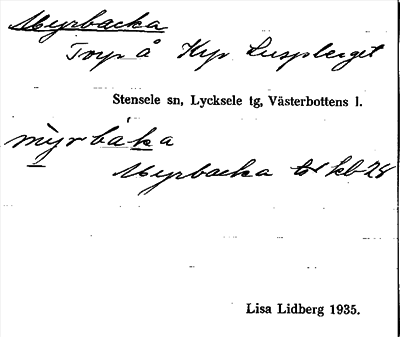 Myrbacka
Torp å Krp Luspberget
Stensele sn, Lycksele tg, Västerbottens l.
mỳrbáka
Myrbacka kb 28
Lisa Lidberg 1935.